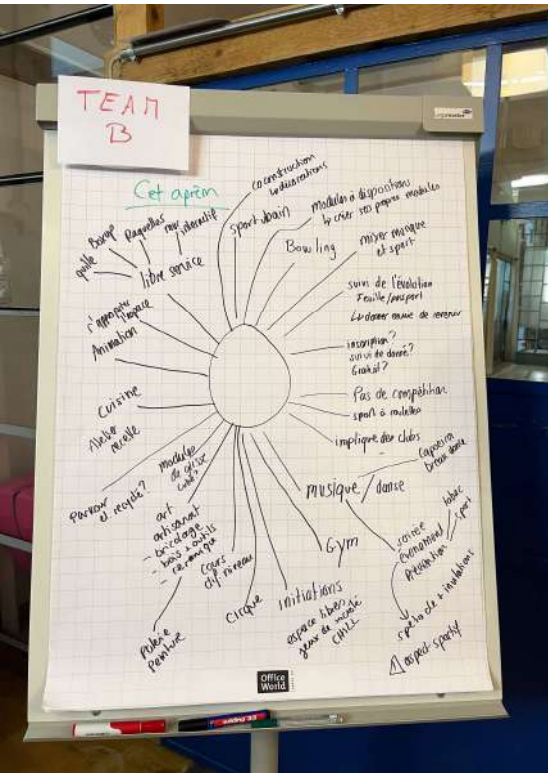 TEAM
B
Cet aprèm
coconstruction
↳ décorations
sport urbain
modules à dispositions
↳ créer ses propres modules
Bowling
mixer musique
et sport
suivi de l'évolution
Feuille/passport
↳ donner envie de revenir
inscription?
suivi de donné?
Gratuit?
Pas de compétition
sport à roulettes
implique des clubs
capoeira
break dance
musique / danse
tabac
sport
soirée
évènement
Prévention
spectacle + invitations
⚠ aspect sportif
Gym
initiations
espace libre
jeux de société
CHILL
cirque
cours
dif. niveau
modules
de glisse
art
artisanat
- bricolage
- bois + outils
- céramique
Poterie
Peinture
Parkour
et recyclé?
Atelier
recette
Cuisine
Animation
s'approprier
l'espace
libre service
quille
Raquettes
mur
interactif
edding 33
Office
World